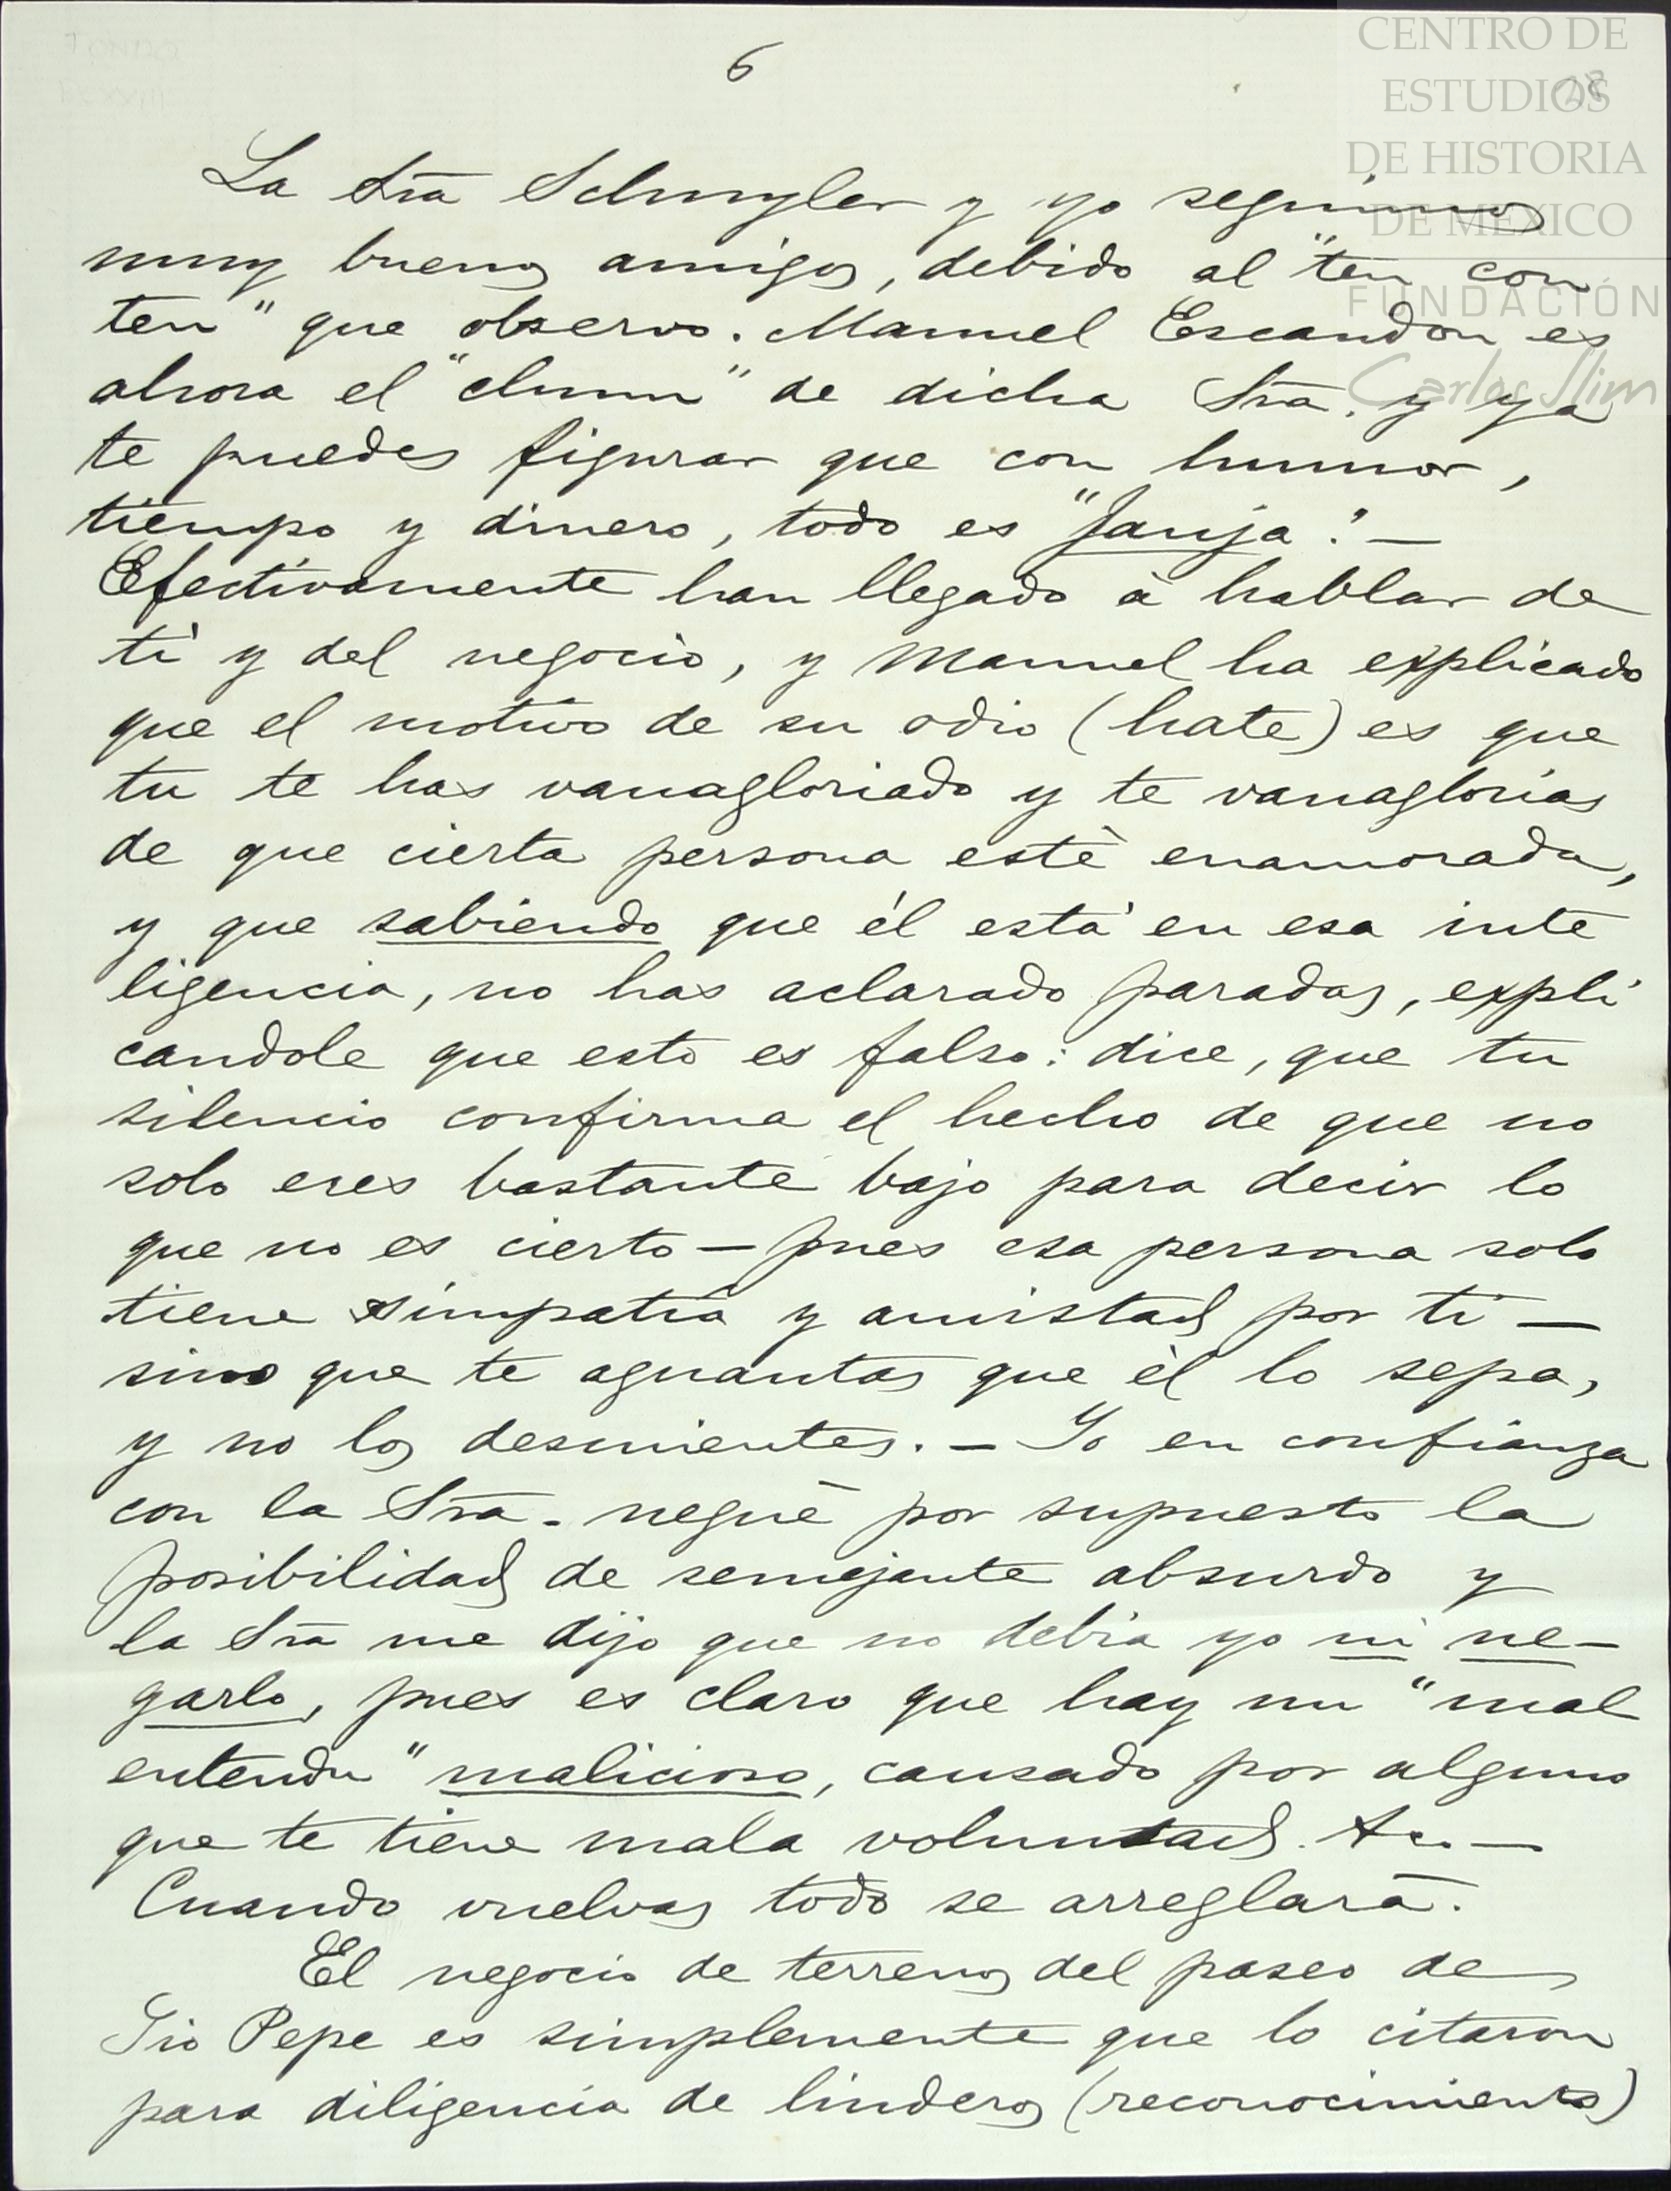 6
28
CENTRO DE
ESTUDIOS
DE HISTORIA
DE MEXICO
FUNDACIÓN
Carlos Slim
La Sra Schuyler y yo seguimos
muy buenos amigos, debido al "ten con
ten" que observo. Manuel Escandon es
ahora el "chum" de dicha Sra. y ya
te puedes figurar que con humor,
tiempo y dinero, todo es "Jauja".—
Efectivamente han llegado á hablar de
tí y del negocio, y Manuel ha explicado
que el motivo de su odio (hate) es que
tu te has vanagloriado y te vanaglorias
de que cierta persona esté enamorada,
y que sabiendo que él está en esa inte
ligencia, no has aclarado paradas, expli
candole que esto es falso: dice, que tu
silencio confirma el hecho de que no
solo eres bastante bajo para decir lo
que no es cierto — pues esa persona solo
tiene simpatia y amistad por tí —
sino que te aguantas que él lo sepa,
y no los desmientes. — Yo en confianza
con la Sra. negué por supuesto la
posibilidad de semejante absurdo y
la Sra me dijo que no debia yo ni ne-
garlo, pues es claro que hay un "mal
entendu" malicioso, causado por alguno
que te tiene mala voluntad. &c. —
Cuando vuelvas todo se arreglará.
El negocio de terrenos del paseo de
Tio Pepe es simplemente que lo citaron
para diligencia de linderos (reconocimiento)